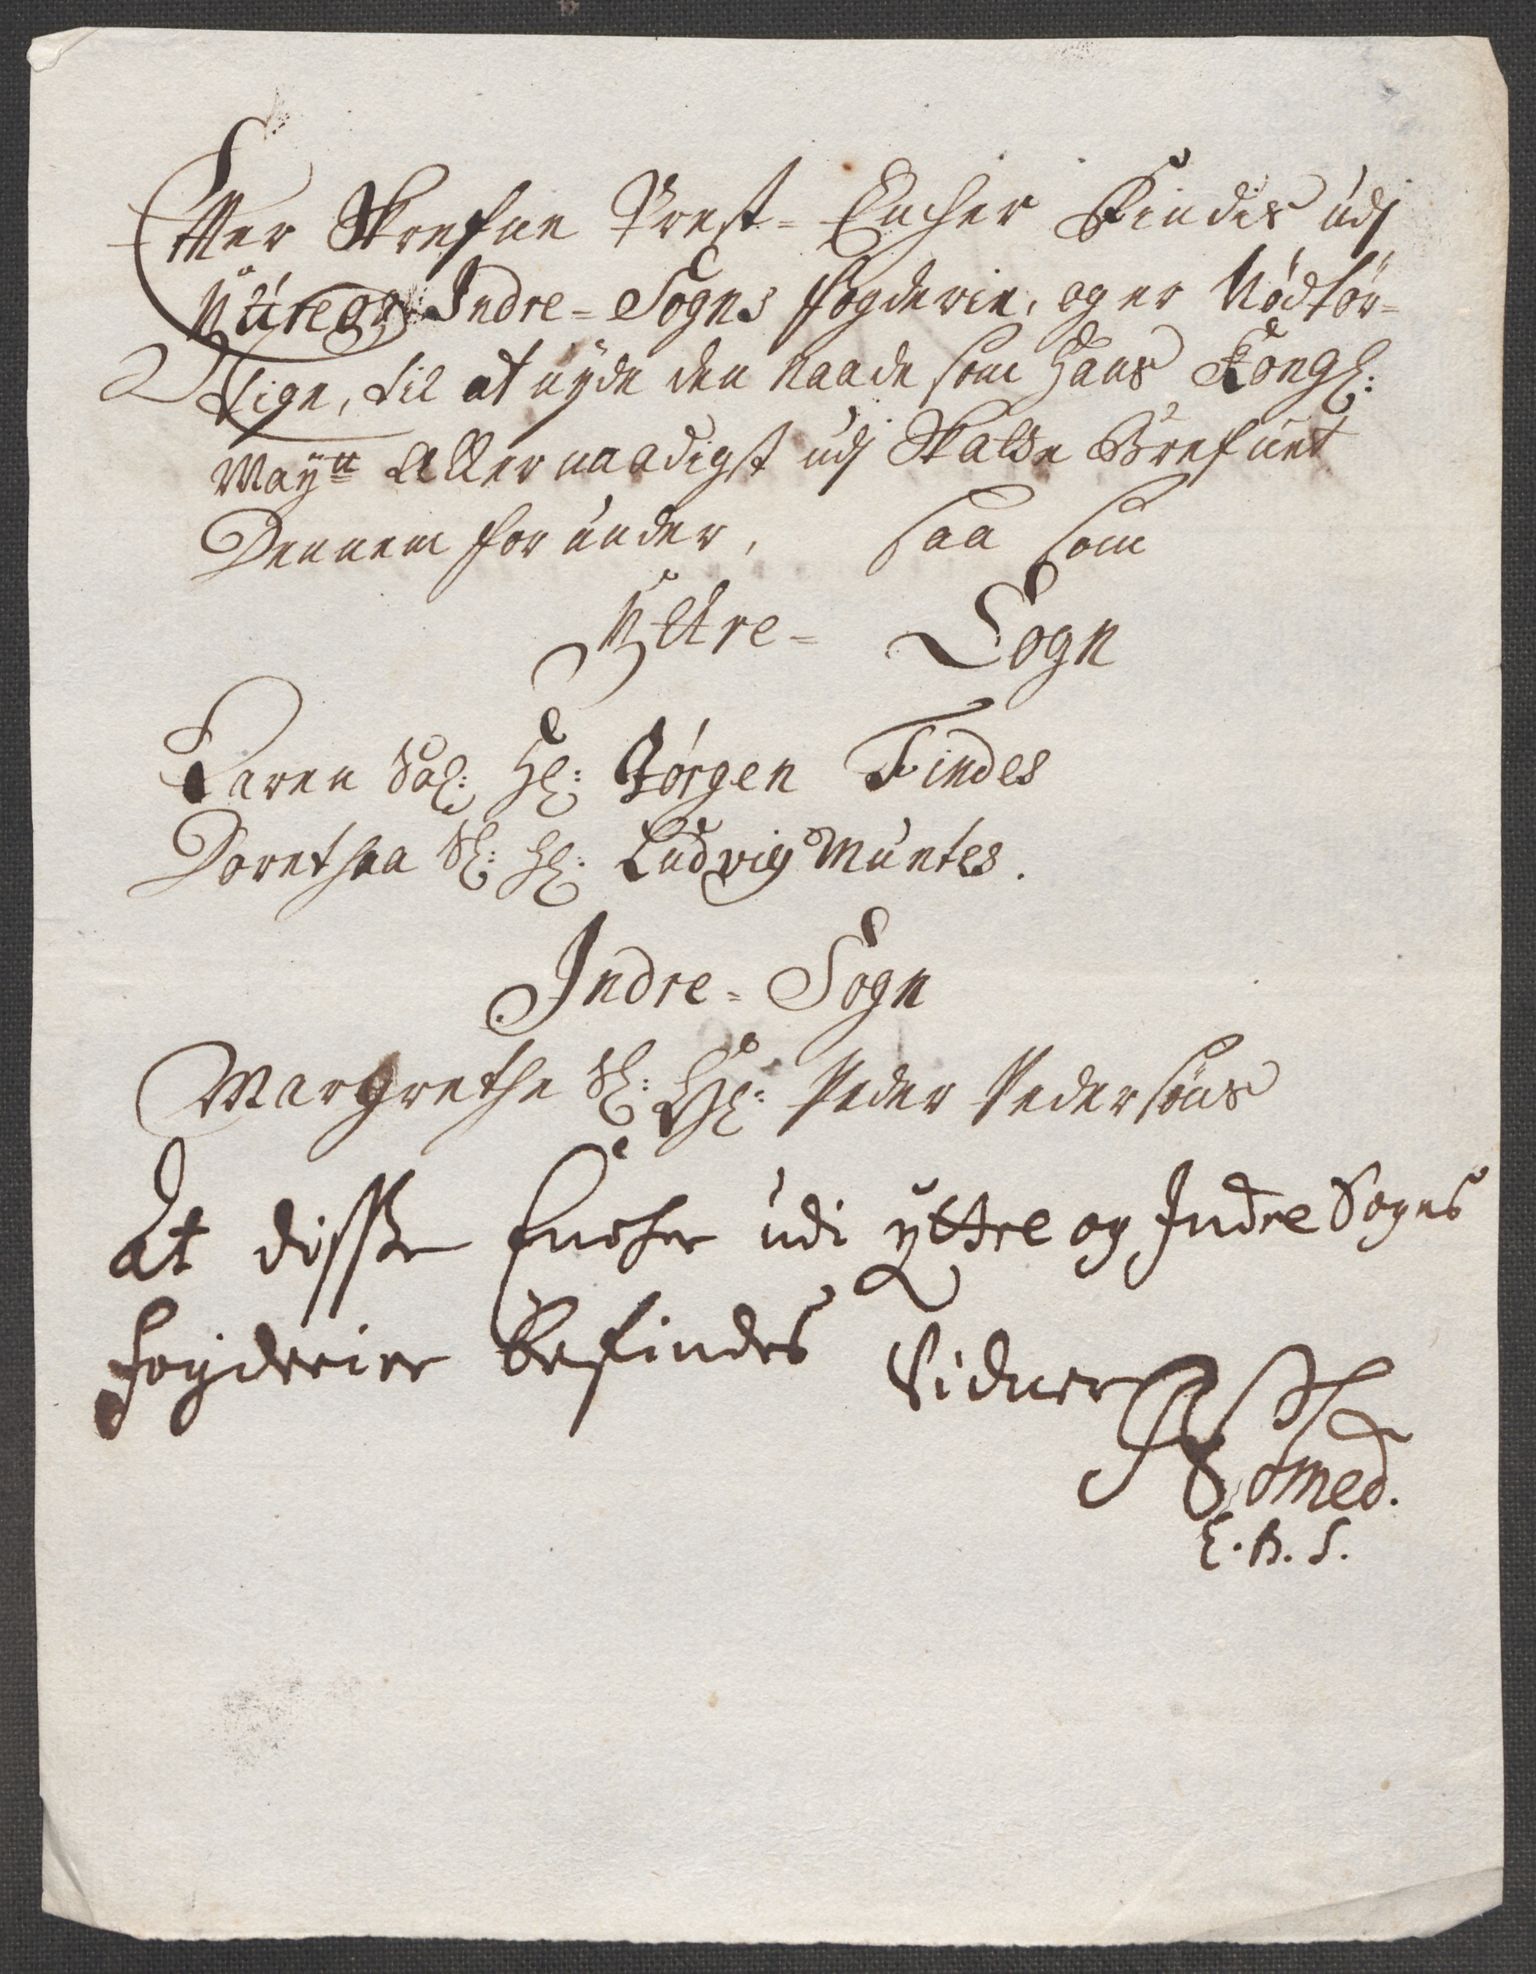 Efter Skrefne Prest-Encher Findes udj
Yttre og Indre-Sogns fogderie, og er Nødtør-
ftige, til at nyde den Naade som Hans Kongl:
Maytt Allernaadigst udj Skatte Brefuet
Dennem forunder, saa som
Yttre- Sogn
Karen Sal: Hl: Jørgen Findes
Dorethea Sl: Hl: Ludvig Muntes.
Indre-Sogn
Margrethe Sl: Hl: Peder Pedersøns
At disse Encher udi yttre og Indre Sogns
fogderier befindes Vidner
Smed.
E.B.S.